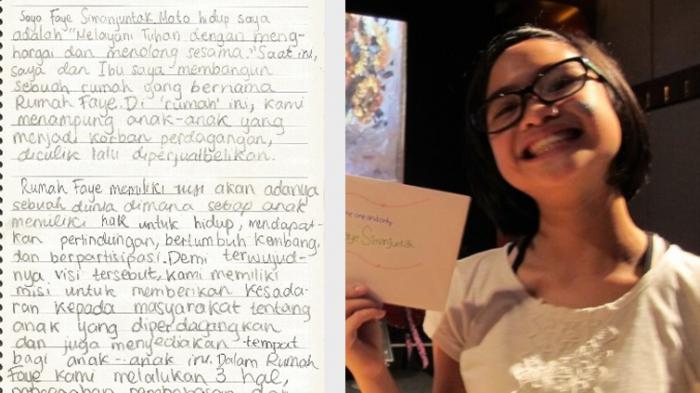 Saya Faye Simanjuntak. Moto hidup saya
adalah "Melayani Tuhan dengan meng-
hargai dan menolong sesama." Saat ini,
saya dan Ibu saya membangun
sebuah rumah yang bernama
Rumah Faye. Di 'rumah' ini, kami
menampung anak-anak yang
menjadi korban perdagangan,
diculik lalu diperjualbelikan.
Rumah Faye memiliki visi akan adanya
sebuah dunia dimana setiap anak
memiliki hak untuk hidup, mendapat-
kan perlindungan, bertumbuh kembang,
dan berpartisipasi. Demi terwujud-
nya visi tersebut, kami memiliki
misi untuk memberikan kesada-
ran kepada masyarakat tentang
anak yang diperdagangkan
dan juga menyediakan tempat
bagi anak-anak ini. Dalam Rumah
Faye kami melalukan 3 hal,
pencegahan, pembebasan dan
one and only
Faye Simanjuntak